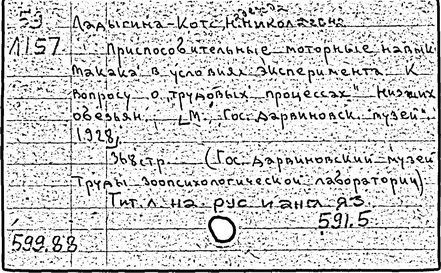 59 Ладыгина-Котс, Надежда Николаевна.
Л157 Приспособительные моторные навыки
макака в условиях эксперимента. К
вопросу о „трудовых процессах" низших
обезьян. М., Гос. Дарвиновск. музей.
1928,
368 стр. (Гос. Дарвиновский музей
Труды зоопсихологической лаборатории)
Тит. л. на рус и англ яз.
591.5
599.88